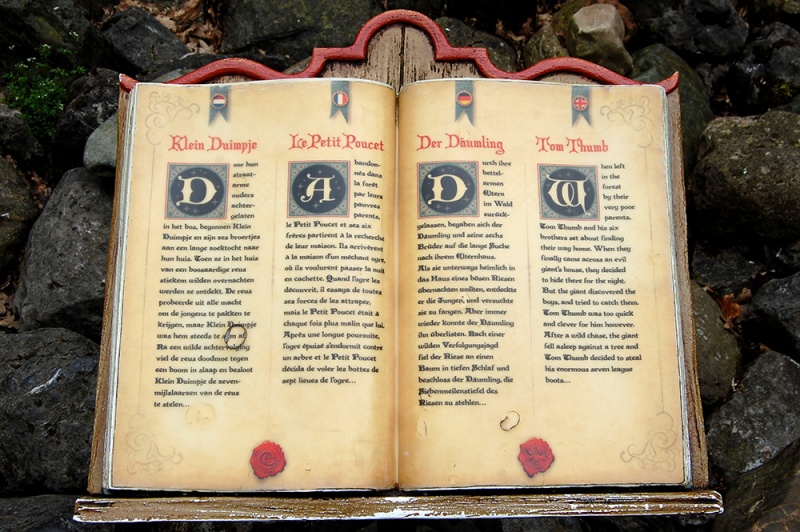 Klein Duimpje
Door hun
straat-
arme
ouders
achter-
gelaten
in het bos, begonnen Klein
Duimpje en zijn zes broertjes
aan een lange zoektocht naar
hun huis. Toen ze in het huis
van een boosaardige reus
stiekem wilden overnachten
werden ze ontdekt. De reus
probeerde uit alle macht
om de jongens te pakken te
krijgen, maar Klein Duimpje
was hem steeds te
Na een wilde achtervolging
viel de reus doodmoe tegen
een boom in slaap en besloot
Klein Duimpje de zeven-
mijlslaarzen van de reus
te stelen...
Le Petit Poucet
Abandon-
nés dans
la forêt
par leurs
pauvres
parents,
le Petit Poucet et ses six
frères partirent à la recherche
de leur maison. Ils arrivèrent
à la maison d'un méchant ogre,
où ils voulurent passer la nuit
en cachette. Quand l'ogre les
découvrit, il essaya de toutes
ses forces de les attraper,
mais le Petit Poucet était à
chaque fois plus malin que lui.
Après une longue poursuite,
l'ogre épuisé s'endormit contre
un arbre et le Petit Poucet
décida de voler les bottes de
sept lieues de l'ogre...
Der Däumling
Durch ihre
bettel-
armen
Eltern
im Wald
zurück-
gelassen, begaben sich der
Däumling und seine sechs
Brüder auf die lange Suche
nach ihrem Elternhaus.
Als sie unterwegs heimlich in
das Haus eines bösen Riesen
übernachten wollten, entdeckte
er die Jungen, und versuchte
sie zu fangen. Aber immer
wieder konnte der Däumling
ihn überlisten. Nach einer
wilden Verfolgungsjagd
fiel der Riese an einen
Baum in tiefen Schlaf und
beschloss der Däumling, die
Siebenmeilenstiefel des
Riesen zu stehlen...
Tom Thumb
When left
in the
forest
by their
very poor
parents,
Tom Thumb and his six
brothers set about finding
their way home. When they
finally came across an evil
giant's house, they decided
to hide there for the night.
But the giant discovered the
boys, and tried to catch them.
Tom Thumb was too quick
and clever for him however.
After a wild chase, the giant
fell asleep against a tree and
Tom Thumb decided to steal
his enormous seven league
boots...